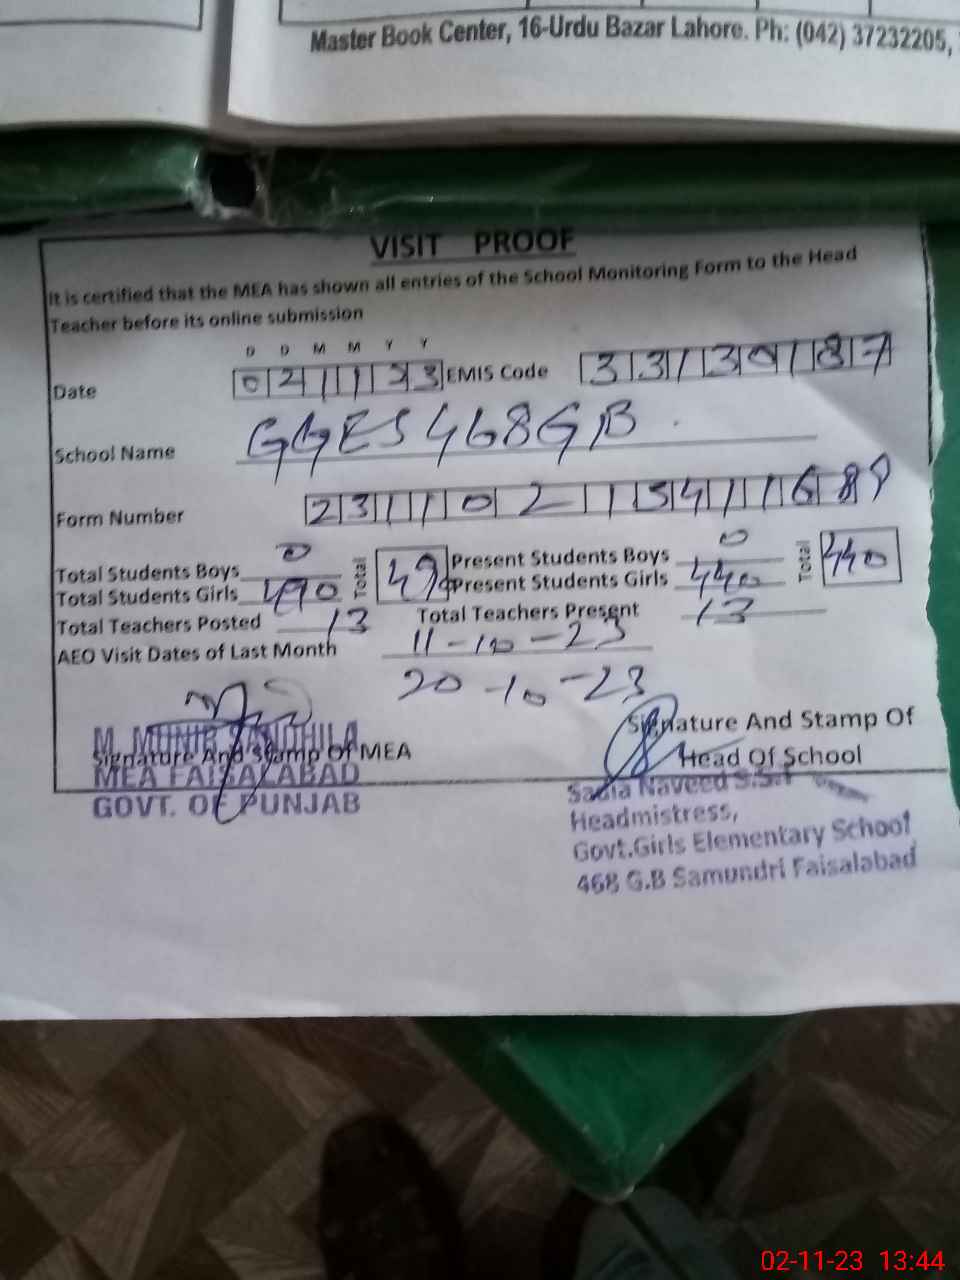 Master Book Center, 16-Urdu Bazar Lahore. Ph: (042) 37232205,
VISIT PROOF
It is certified that the MEA has shown all entries of the School Monitoring Form to the Head
Teacher before its online submission
D D M M Y Y
Date 021123 EMIS Code 33130187
School Name GGES 468 GB
Form Number
Total Students Boys 0 Total 490 Present Students Boys 0 Total 440
Total Students Girls 490 Present Students Girls 440
Total Teachers Posted 13 Total Teachers Present 13
AEO Visit Dates of Last Month 11-10-23
20-10-23
Signature And Stamp Of
M. MUNIR SANDHILA
Signature And Stamp Of MEA Head Of School
MEA FAISALABAD
GOVT. OF PUNJAB
Sadia Naveed S.S.T
Headmistress,
Govt.Girls Elementary School
468 G.B Samundri Faisalabad
02-11-23 13:44